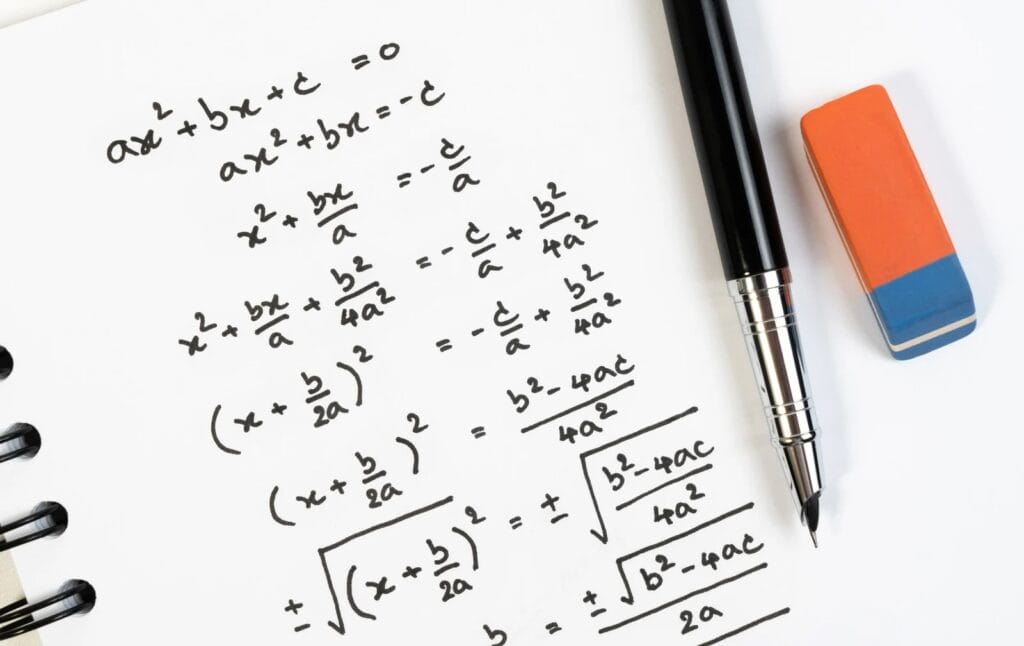 ax² + bx + c = 0
ax² + bx = -c
x² + bx/a = -c/a
x² + bx/a + b²/4a² = -c/a + b²/4a²
(x + b/2a)² = -c/a + b²/4a²
(x + b/2a)² = (b² - 4ac)/4a²
±√(x + b/2a)² = ±√((b² - 4ac)/4a²)
b = ±√(b² - 4ac)/2a